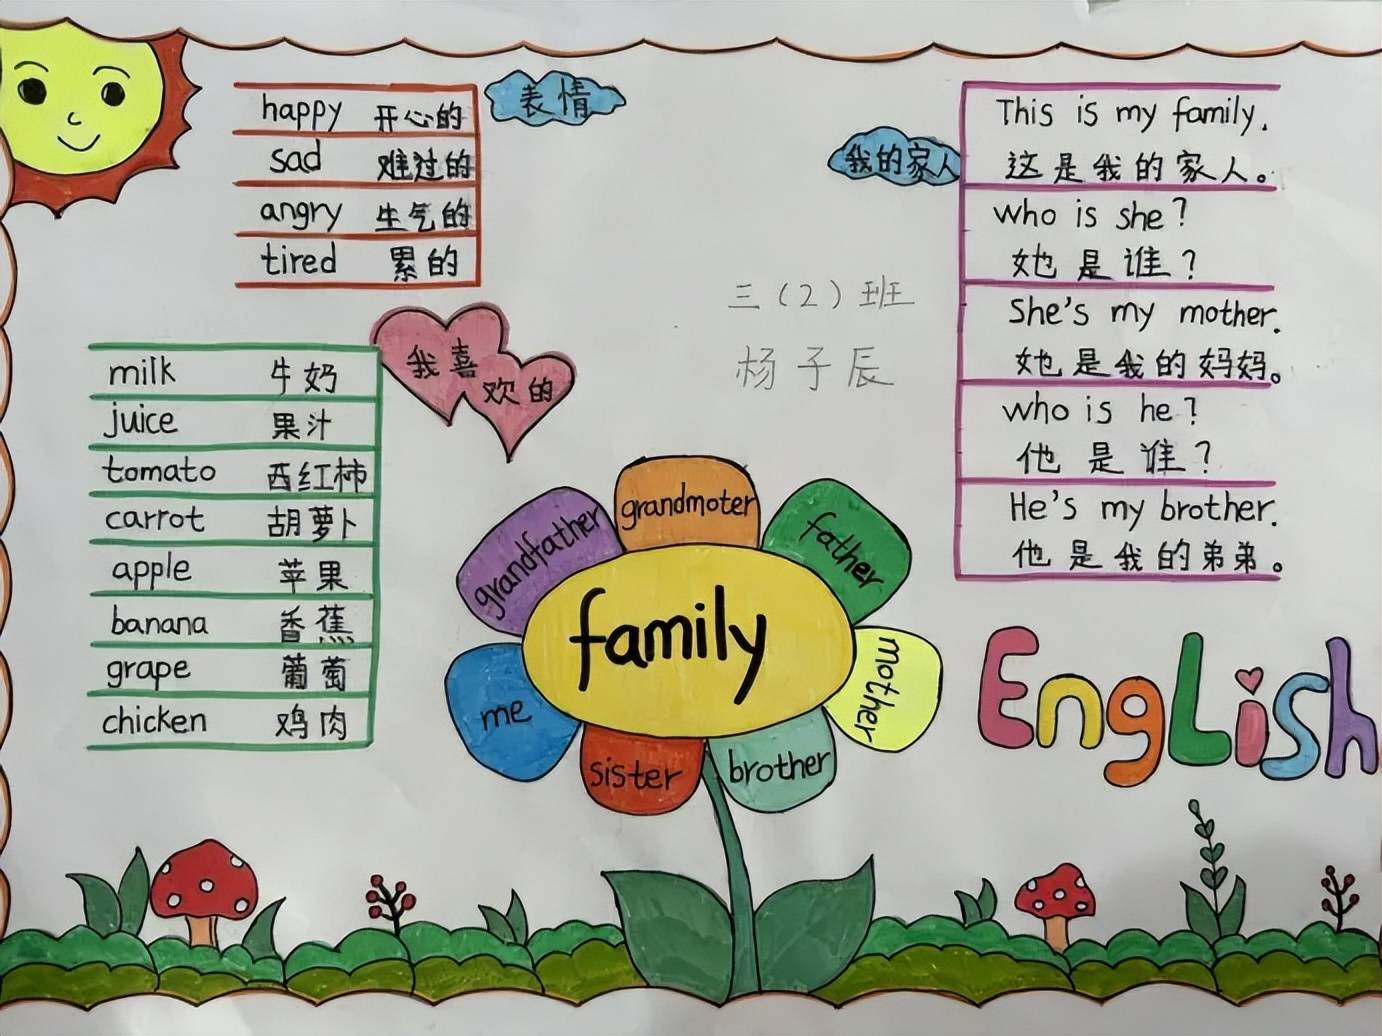 表情
happy 开心的
sad 难过的
angry 生气的
tired 累的
我的家人
This is my family.
这是我的家人。
who is she?
她是谁?
She's my mother.
她是我的妈妈。
who is he?
他是谁?
He's my brother.
他是我的弟弟。
三(2)班
杨子辰
我喜
欢的
milk 牛奶
juice 果汁
tomato 西红柿
carrot 胡萝卜
apple 苹果
banana 香蕉
grape 葡萄
chicken 鸡肉
family
grandfather
grandmoter
father
mother
brother
sister
me
EngLish